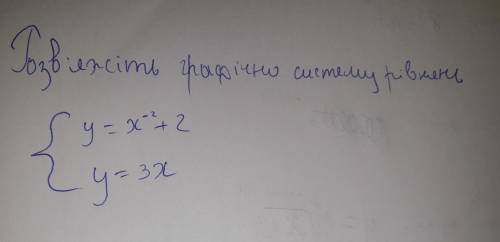 Розв'яжсіть графічно систему рівнянь
{ y = x⁻² + 2
y = 3x